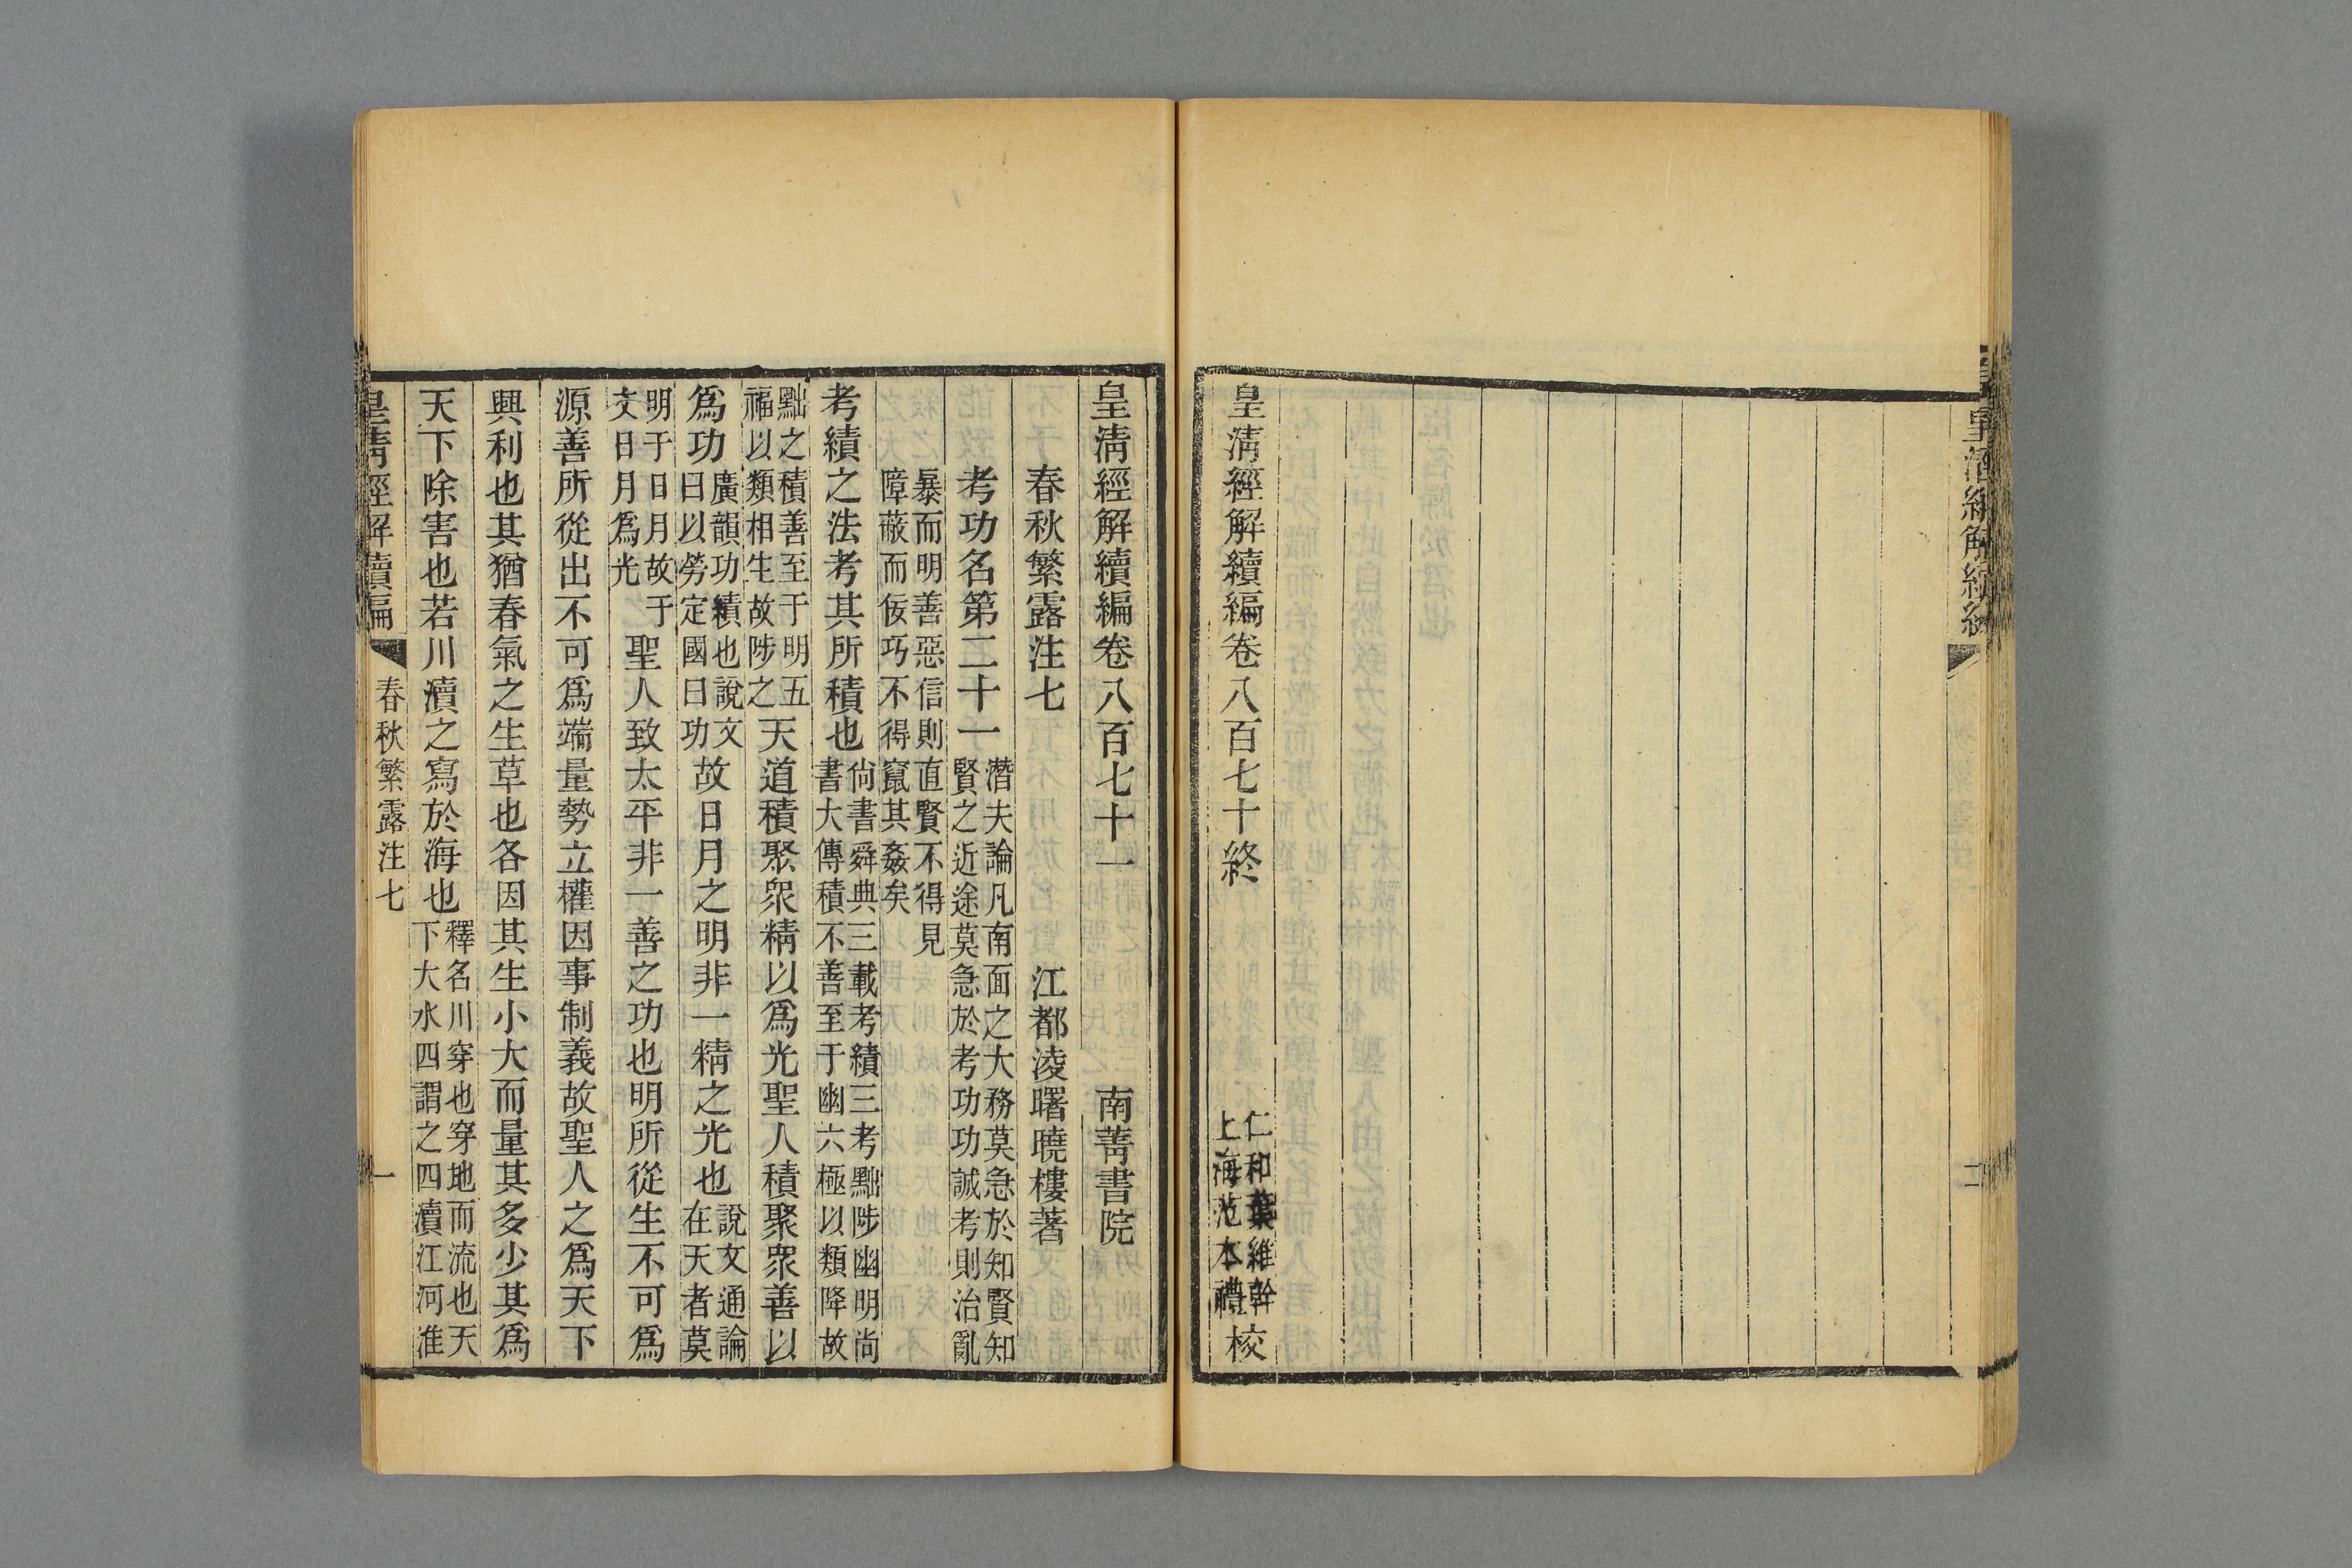 皇清經解續編
二
皇清經解續編卷八百七十終
仁和葉維幹
上海范本禮
校
皇清經解續編卷八百七十一
南菁書院
春秋繁露注七
江都淩曙曉樓著
考功名第二十一
潛夫論凡南面之大務莫急於知賢知
賢之近途莫急於考功功誠考則治亂
暴而明善惡信則直賢不得見
障蔽而佞巧不得竄其姦矣
考績之法考其所積也
尙書舜典三載考績三考黜陟幽明尙
書大傳積不善至于幽六極以類降故
黜之積善至于明五
福以類相生故陟之
天道積聚衆精以爲光聖人積聚衆善以
爲功
廣韻功績也說文
曰以勞定國曰功
故日月之明非一精之光也
說文通論
在天者莫
明于日月故于
文日月爲光
聖人致太平非一善之功也明所從生不可爲
源善所從出不可爲端量勢立權因事制義故聖人之爲天下
興利也其猶春氣之生草也各因其生小大而量其多少其爲
天下除害也若川瀆之寫於海也
釋名川穿也穿地而流也天
下大水四謂之四瀆江河淮
皇清經解續編
春秋繁露注七
一